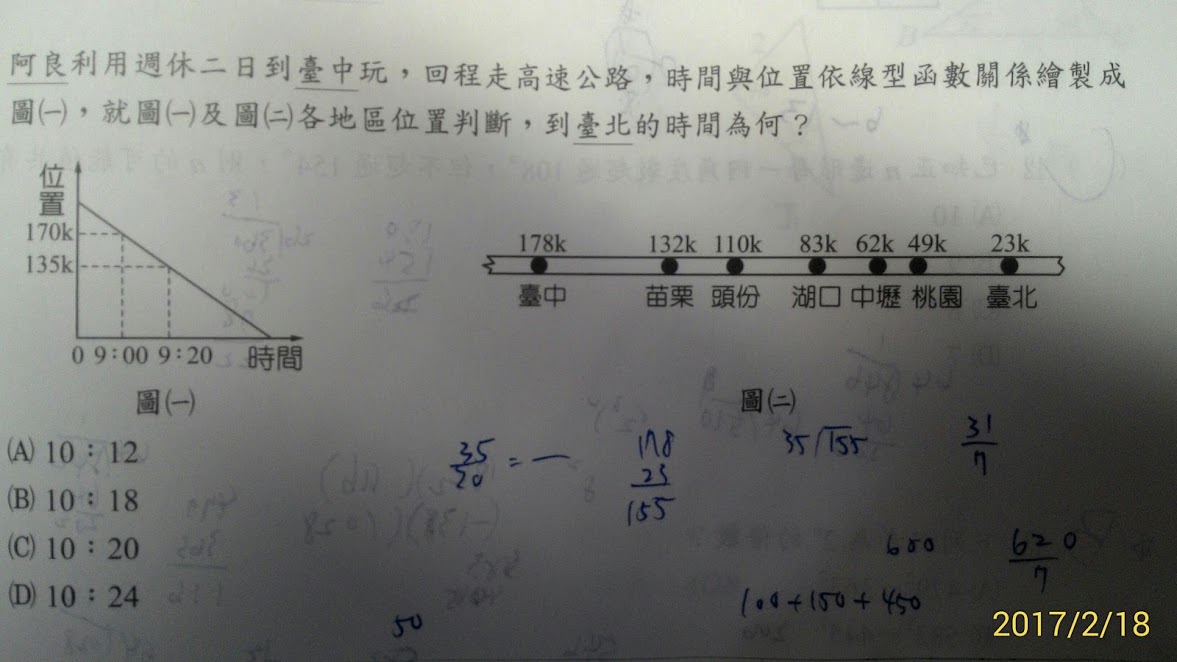 阿良利用週休二日到臺中玩，回程走高速公路，時間與位置依線型函數關係繪製成
圖㈠，就圖㈠及圖㈡各地區位置判斷，到臺北的時間為何？
位置
170k
135k
0 9：00 9：20 時間
圖㈠
178k 132k 110k 83k 62k 49k 23k
臺中 苗栗 頭份 湖口 中壢 桃園 臺北
圖㈡
(A) 10：12
(B) 10：18
(C) 10：20
(D) 10：24
35/20 = 一
178
23
155
35 155
31/7
600
620/7
100+150+450
50
2017/2/18